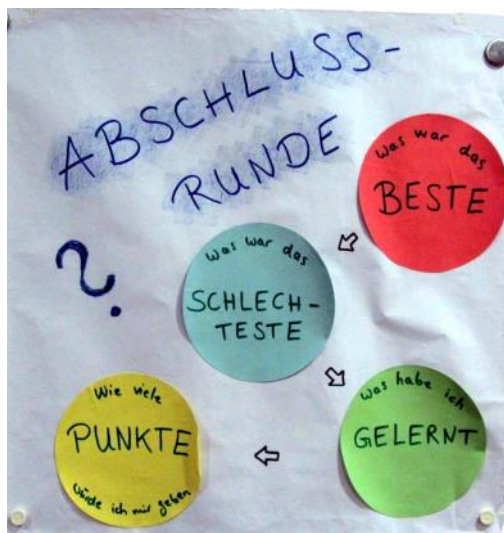 ABSCHLUSS-
RUNDE
?
Was war das
BESTE
Was war das
SCHLECH-
TESTE
was habe ich
GELERNT
Wie viele
PUNKTE
würde ich mir geben